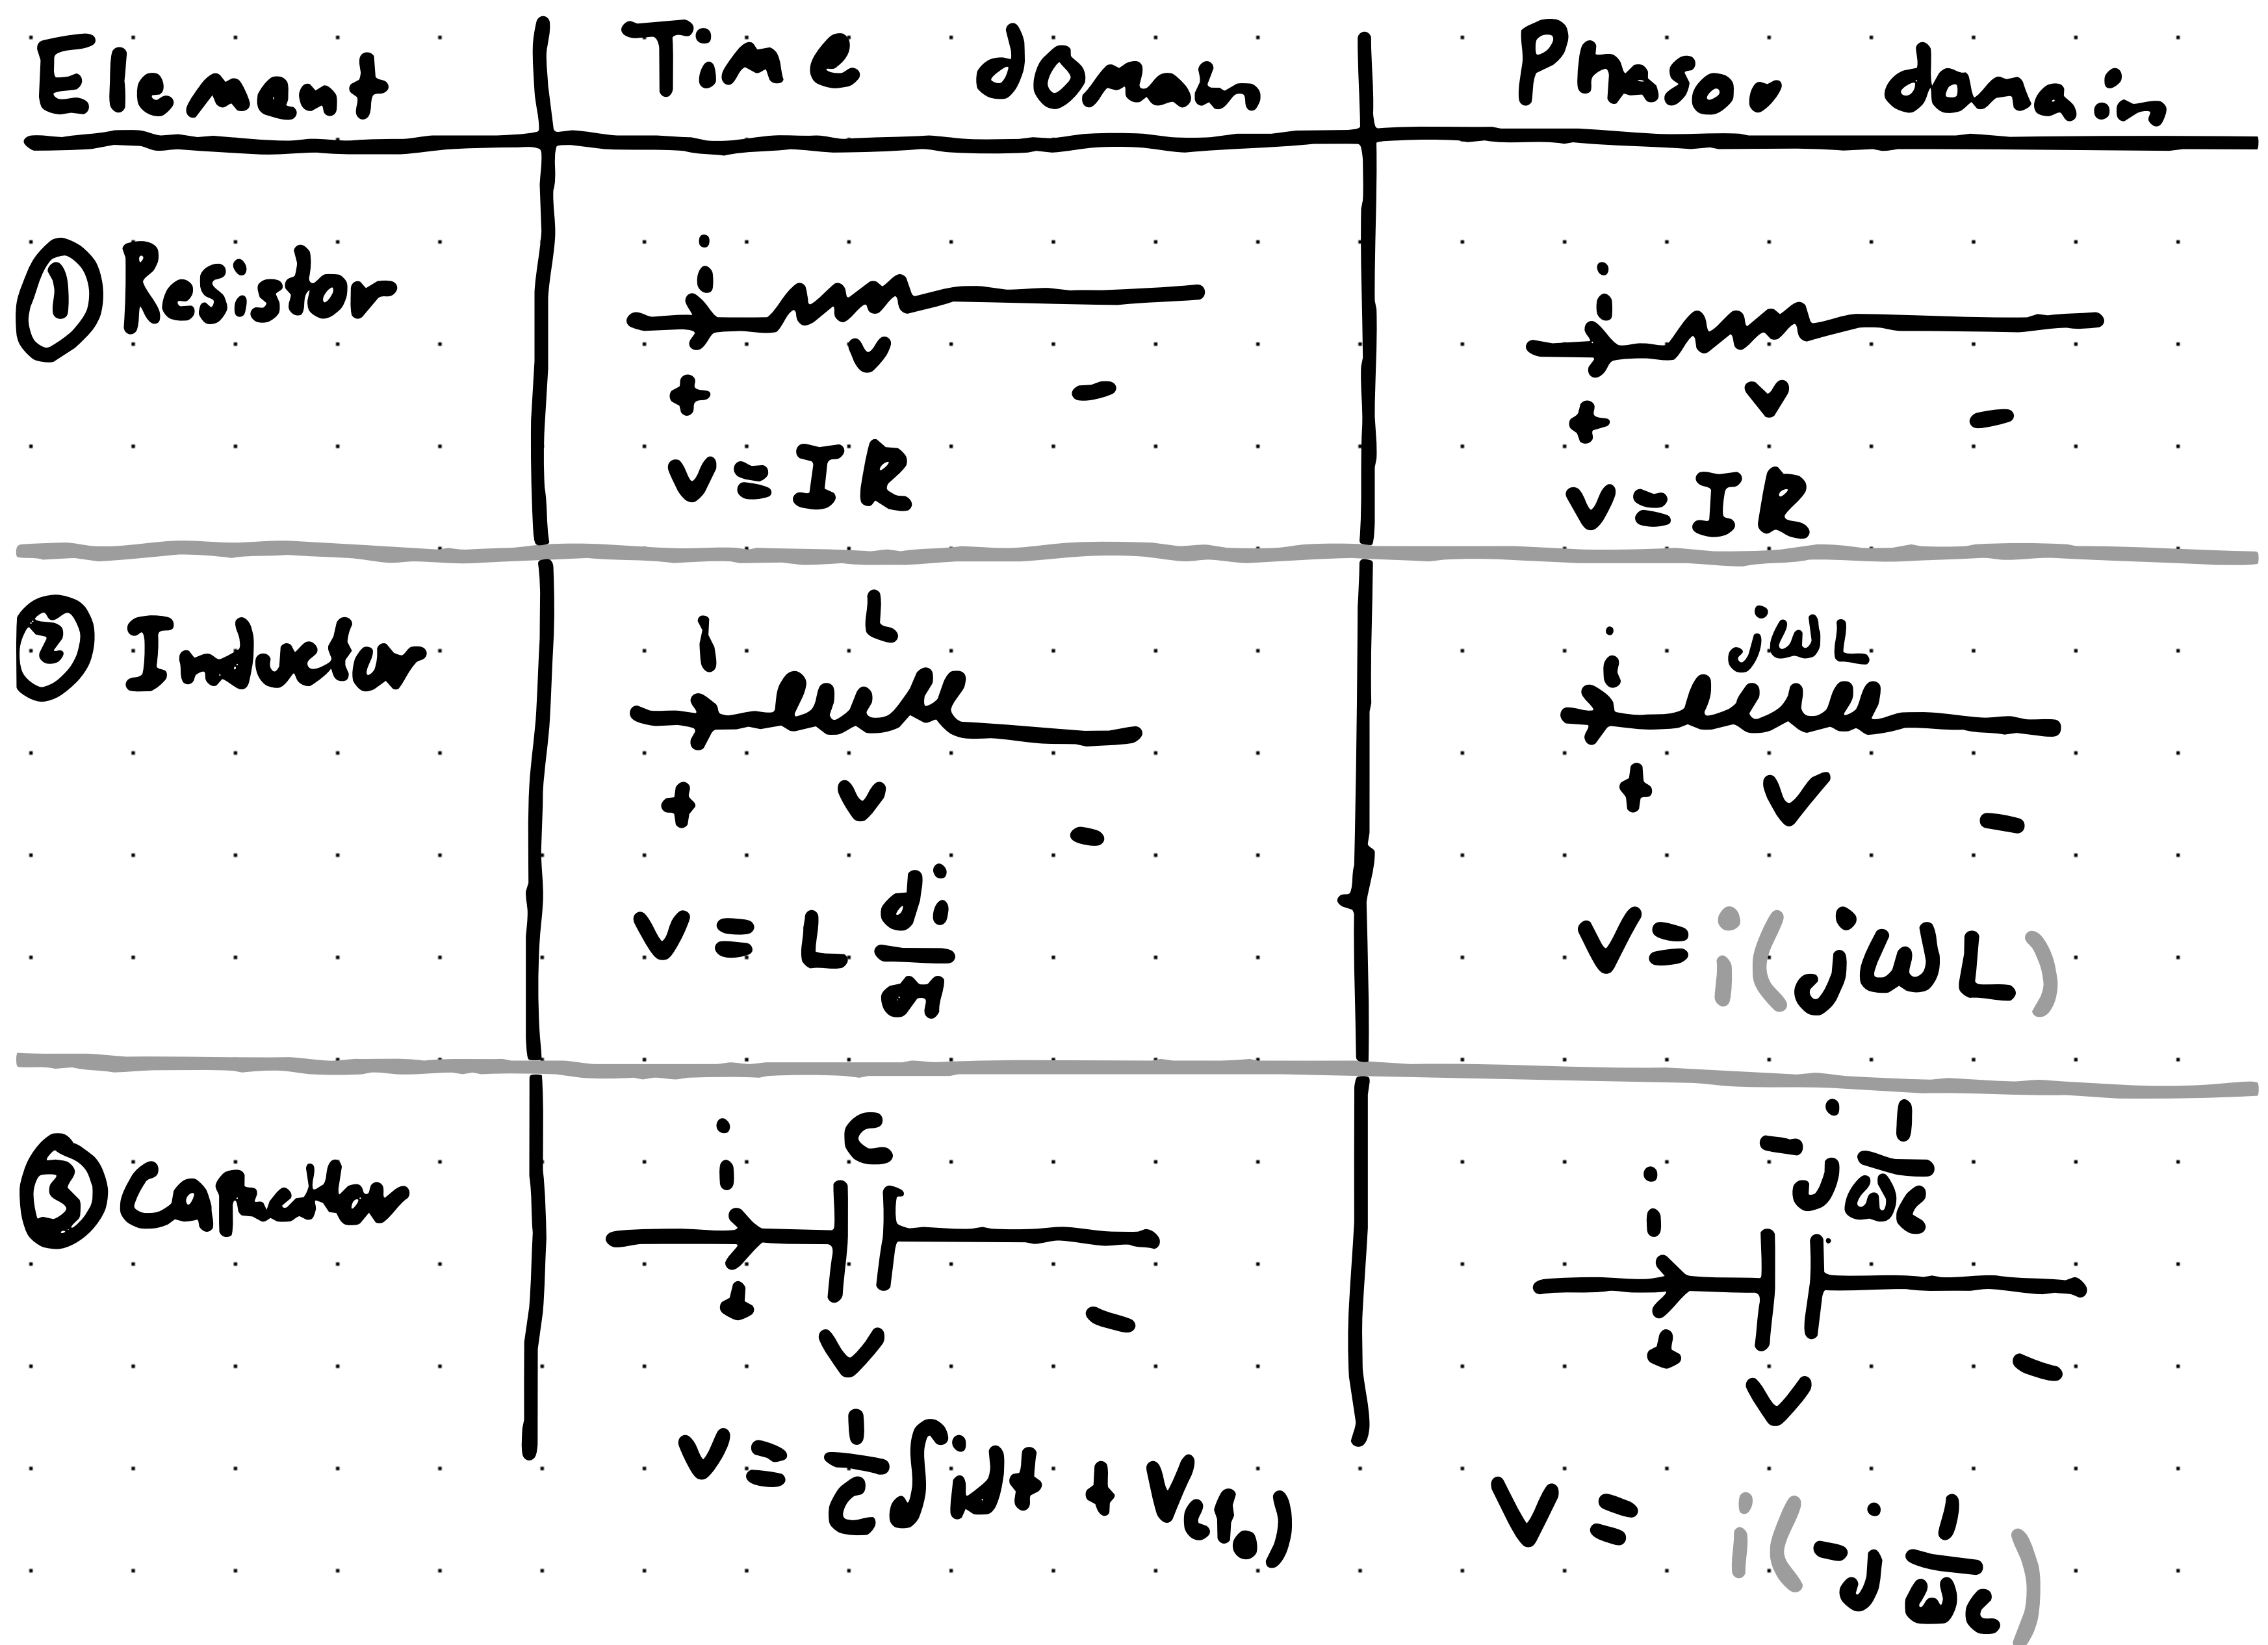 Element Time domain Phasor domain
① Resistor
i
v
+ -
v = IR
i
v
+ -
v = IR
② Inductor
i L
+ v -
v = L di/dt
i jωL
+ v -
v = i(jωL)
③ Capacitor
i C
+ -
v
v = 1/C ∫idt + V(t₀)
i -j 1/ωC
+ -
v
V = i(-j 1/ωC)